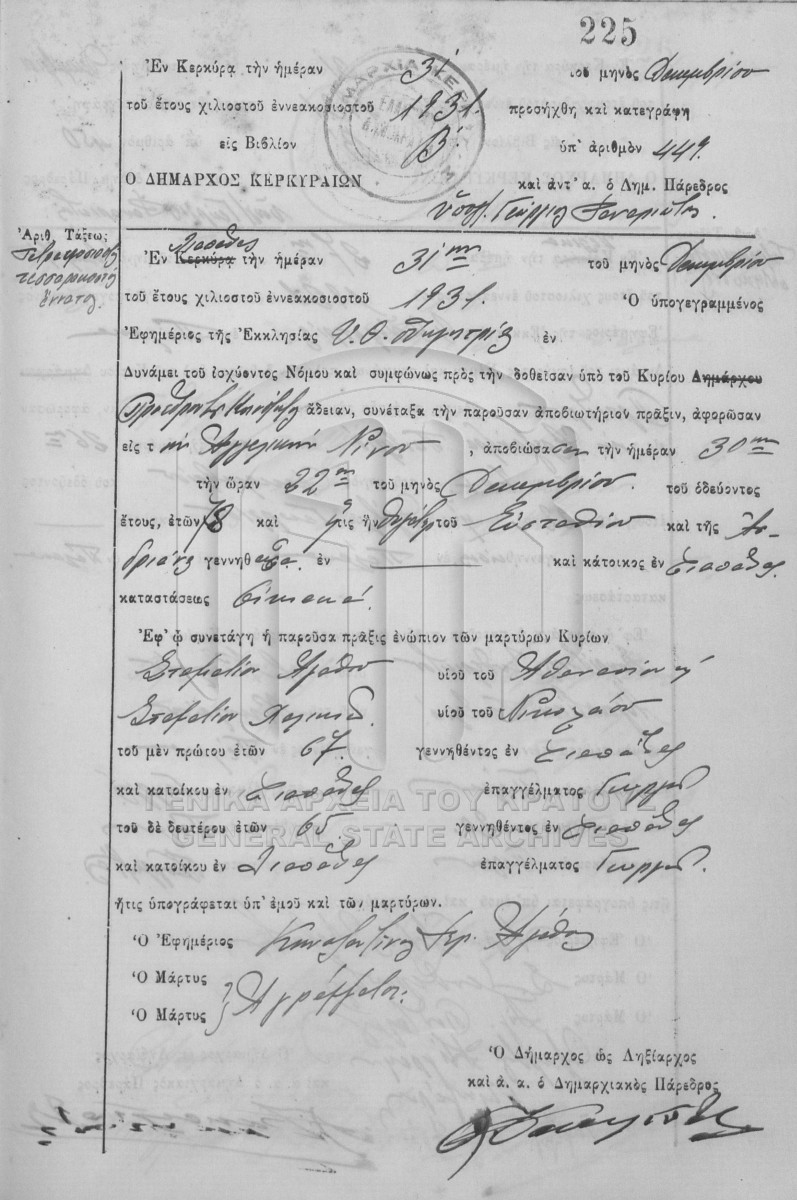 225
Ἐν Κερκύρᾳ τὴν ἡμέραν 31 τοῦ μηνὸς Δεκεμβρίου
τοῦ ἔτους χιλιοστοῦ ἐννεακοσιοστοῦ 1931. προσήχθη καὶ κατεγράφη
εἰς Βιβλίον Β΄. ὑπ' ἀριθμὸν 449.
Ο ΔΗΜΑΡΧΟΣ ΚΕΡΚΥΡΑΙΩΝ καὶ ἀντ' α. ὁ Δημ. Πάρεδρος
Γεώργιος
Ἀριθ. Τάξεως;
τετρακοσιοστή
τεσσαρακοστή
ἐννάτη
Ἐν Κερκύρᾳ τὴν ἡμέραν 31ην τοῦ μηνὸς Δεκεμβρίου
τοῦ ἔτους χιλιοστοῦ ἐννεακοσιοστοῦ 1931. Ὁ ὑπογεγραμμένος
Ἐφημέριος τῆς Ἐκκλησίας Υ. Θ. Δημητρίας ἐν
Δυνάμει τοῦ ἰσχύοντος Νόμου καὶ συμφώνως πρὸς τὴν δοθεῖσαν ὑπὸ τοῦ Κυρίου Δημάρχου
Προέδρου Κοινότητος ἄδειαν, συνέταξα τὴν παροῦσαν ἀποβιωτήριον πρᾶξιν, ἀφορῶσαν
εἰς τὴν Ἀγγελικὴν Νίνου , ἀποβιώσασαν τὴν ἡμέραν 30ην
τὴν ὥραν 22αν τοῦ μηνὸς Δεκεμβρίου. τοῦ ὁδεύοντος
ἔτους, ἐτῶν 78 καὶ ἥτις ἦν θυγάτηρ τοῦ Εὐσταθίου καὶ τῆς Ἀν-
δριάνας γεννηθεῖσα ἐν καὶ κάτοικος ἐν
καταστάσεως οἰκιακά.
Ἐφ' ᾧ συνετάγη ἡ παροῦσα πρᾶξις ἐνώπιον τῶν μαρτύρων Κυρίων
Σταματίου Ἀγάθου υἱοῦ τοῦ Ἀθανασίου κ
Σταματίου υἱοῦ τοῦ Νικολάου
τοῦ μὲν πρώτου ἐτῶν 67. γεννηθέντος ἐν
καὶ κατοίκου ἐν ἐπαγγέλματος Γεωργοῦ
τοῦ δὲ δευτέρου ἐτῶν 65. γεννηθέντος ἐν
καὶ κατοίκου ἐν ἐπαγγέλματος Γεωργοῦ.
ἥτις ὑπογράφεται ὑπ' ἐμοῦ καὶ τῶν μαρτύρων.
Ὁ Ἐφημέριος Κωνσταντῖνος Ἱερ. Ἀγάθος
Ὁ Μάρτυς
Ὁ Μάρτυς } Ἀγράμματοι.
Ὁ Δήμαρχος ὡς Ληξίαρχος
καὶ ἀ. α. ὁ Δημαρχιακὸς Πάρεδρος
ΓΕΝΙΚΑ ΑΡΧΕΙΑ ΤΟΥ ΚΡΑΤΟΥΣ
GENERAL STATE ARCHIVES